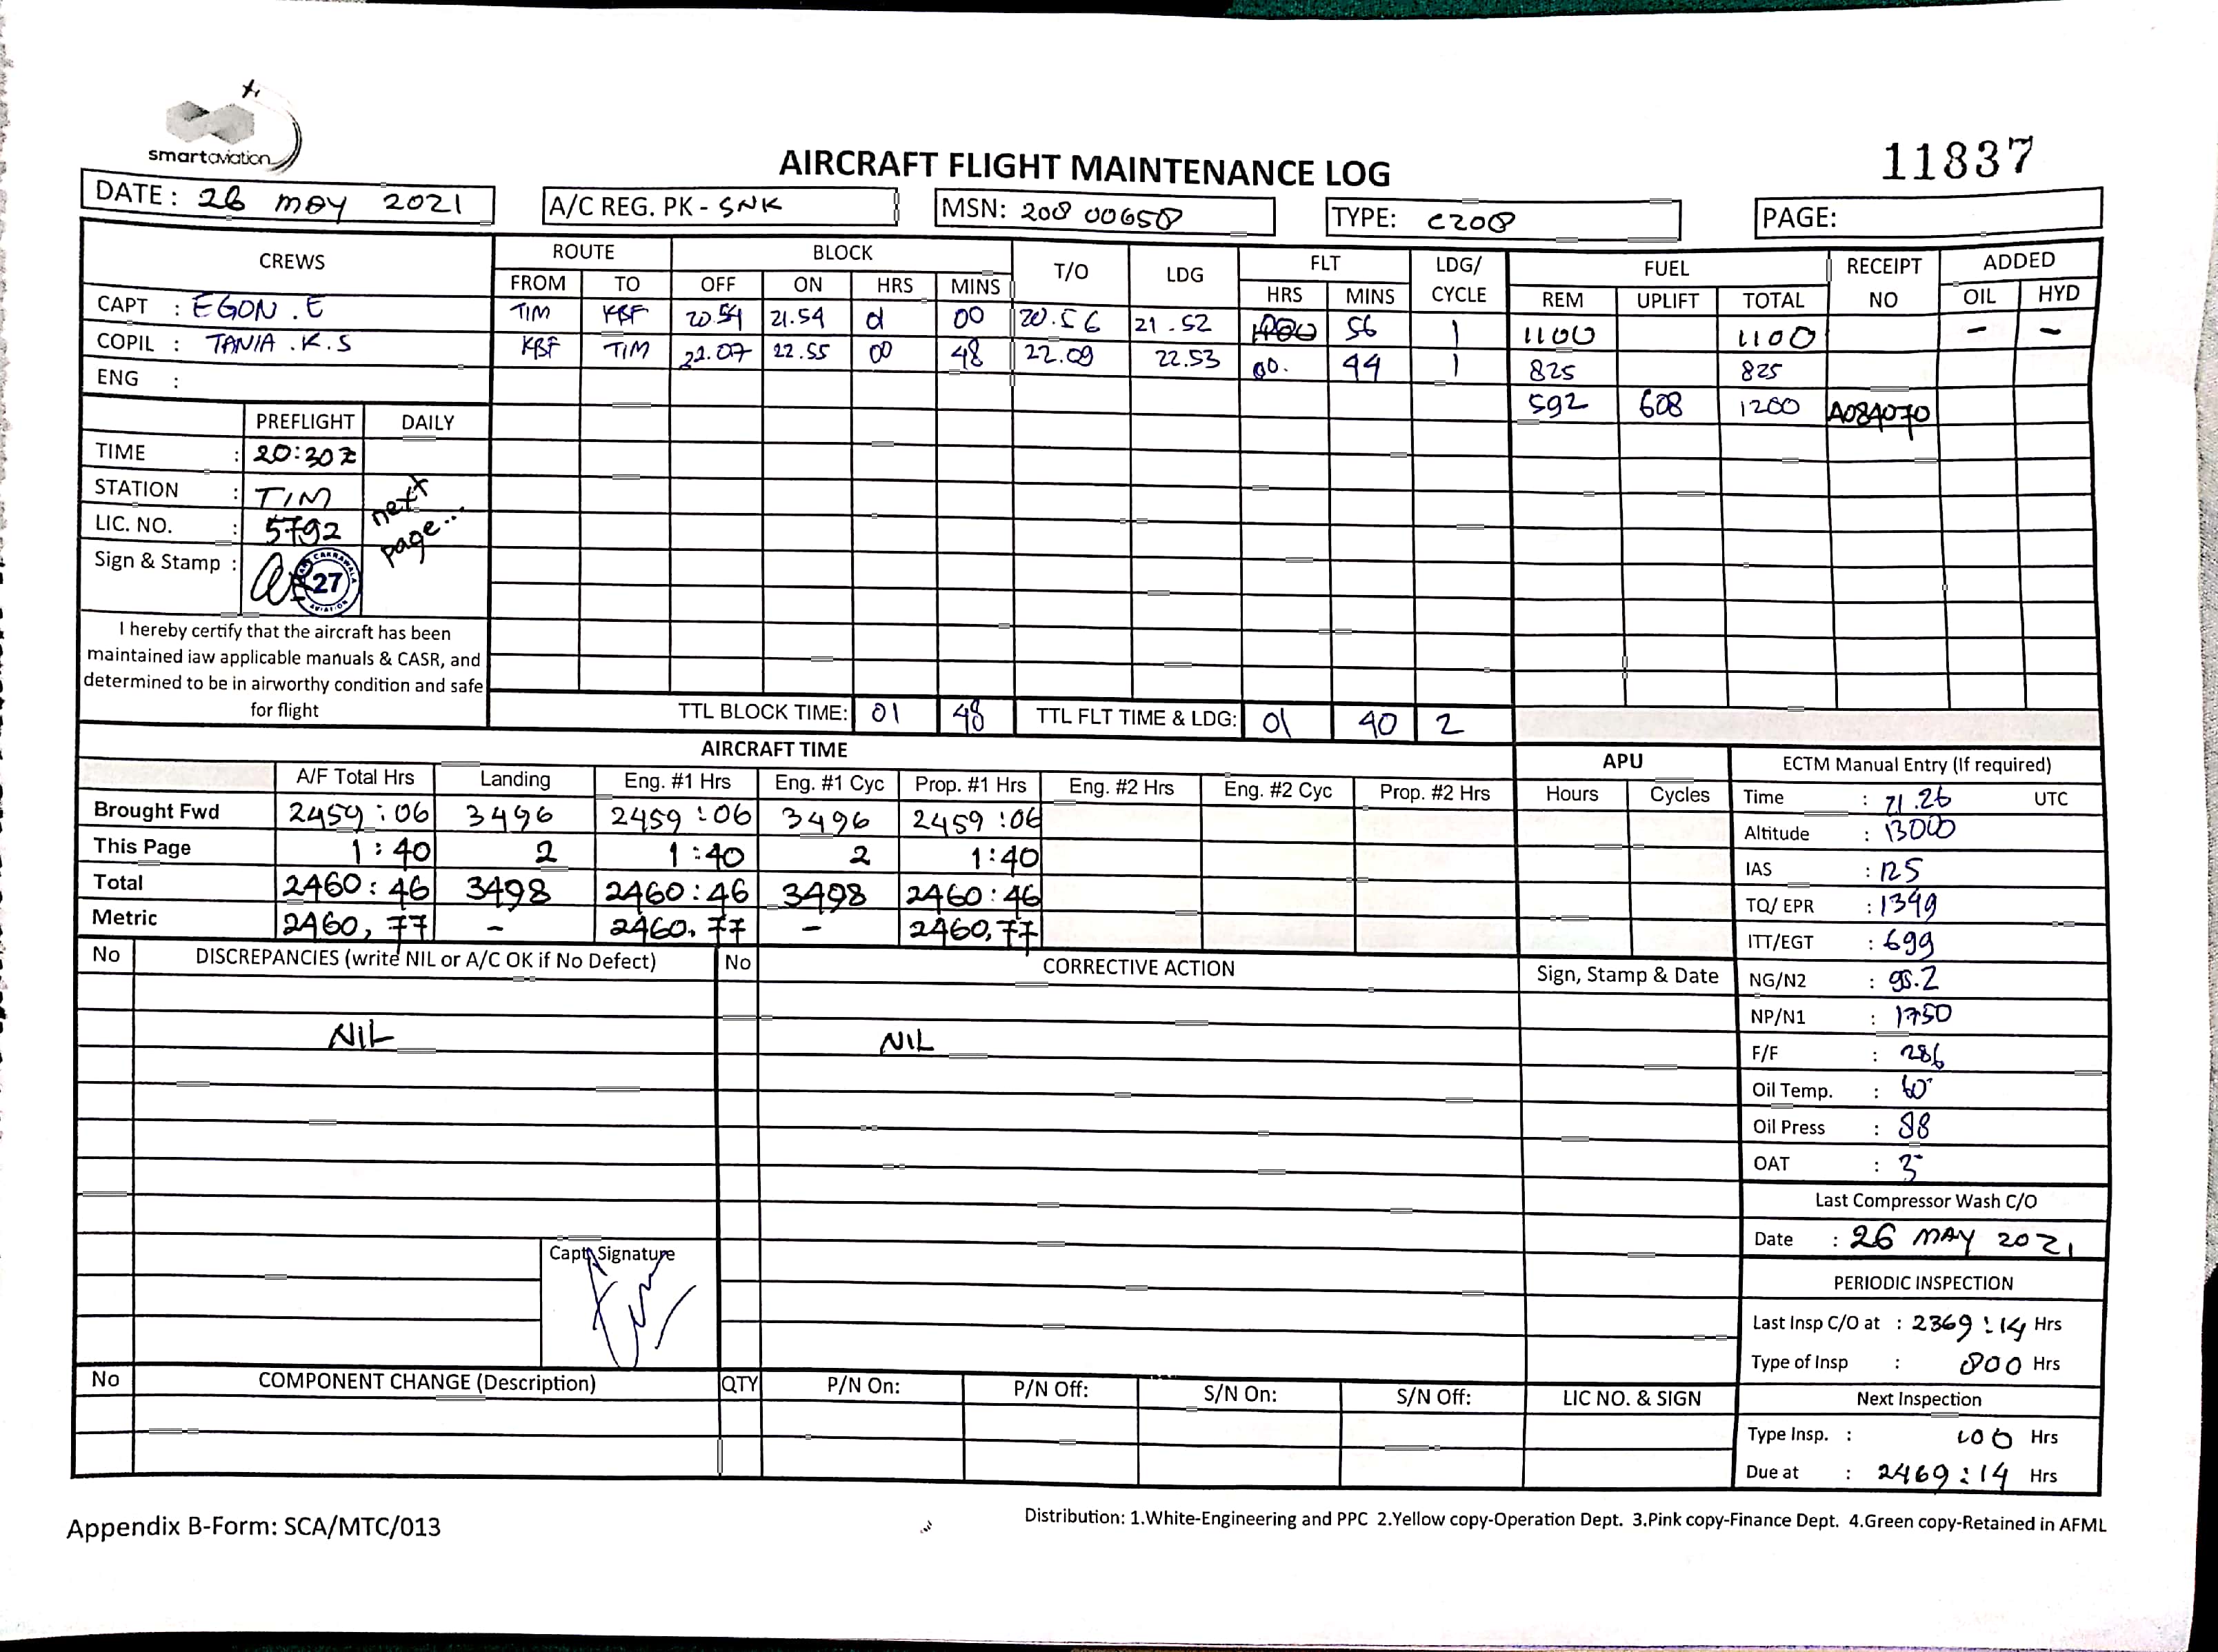 smartaviation
AIRCRAFT FLIGHT MAINTENANCE LOG
11837
DATE: 26 MAY 2021
A/C REG. PK - SNK
MSN: 208 00658
TYPE: C208
PAGE:
CREWS ROUTE BLOCK T/O LDG FLT LDG/ CYCLE FUEL RECEIPT NO ADDED
FROM TO OFF ON HRS MINS HRS MINS REM UPLIFT TOTAL OIL HYD
CAPT : EGON . E TIM KBF 20.54 21.54 00 20.56 21.52 56 1 1100 1100 - -
COPIL : TANIA . K . S KBF TIM 22.07 22.55 00 48 22.09 22.53 00. 44 1 825 825
ENG :
592 608 1200 A084070
PREFLIGHT DAILY
TIME : 20:30z
STATION : TIM
LIC. NO. : 5792
next
page...
Sign & Stamp :
CAKRAWALA
27
AVIATION
I hereby certify that the aircraft has been
maintained iaw applicable manuals & CASR, and
determined to be in airworthy condition and safe
for flight
TTL BLOCK TIME: 01 48 TTL FLT TIME & LDG: 01 40 2
AIRCRAFT TIME APU
A/F Total Hrs Landing Eng. #1 Hrs Eng. #1 Cyc Prop. #1 Hrs Eng. #2 Hrs Eng. #2 Cyc Prop. #2 Hrs Hours Cycles
Brought Fwd 2459:06 3496 2459:06 3496 2459:06
This Page 1:40 2 1:40 2 1:40
Total 2460:46 3498 2460:46 3498 2460:46
Metric 2460,77 - 2460,77 - 2460,77
ECTM Manual Entry (If required)
Time : 21.26 UTC
Altitude : 13000
IAS : 125
TQ/ EPR : 1349
ITT/EGT : 699
NG/N2 : 95.2
NP/N1 : 1750
F/F : 286
Oil Temp. : 60°
Oil Press : 88
OAT : 3°
Last Compressor Wash C/O
Date : 26 MAY 2021
PERIODIC INSPECTION
Last Insp C/O at : 2369:14 Hrs
Type of Insp : 800 Hrs
Next Inspection
Type Insp. : 100 Hrs
Due at : 2469:14 Hrs
No DISCREPANCIES (write NIL or A/C OK if No Defect) No CORRECTIVE ACTION Sign, Stamp & Date
NIL NIL
Capt. Signature
No COMPONENT CHANGE (Description) QTY P/N On: P/N Off: S/N On: S/N Off: LIC NO. & SIGN
Appendix B-Form: SCA/MTC/013
Distribution: 1.White-Engineering and PPC 2.Yellow copy-Operation Dept. 3.Pink copy-Finance Dept. 4.Green copy-Retained in AFML